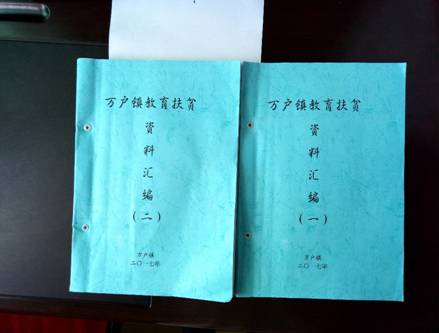 万户镇教育扶贫
资
料
汇
编
(二)
万户镇
二〇一七年
万户镇教育扶贫
资
料
汇
编
(一)
万户镇
二〇一七年